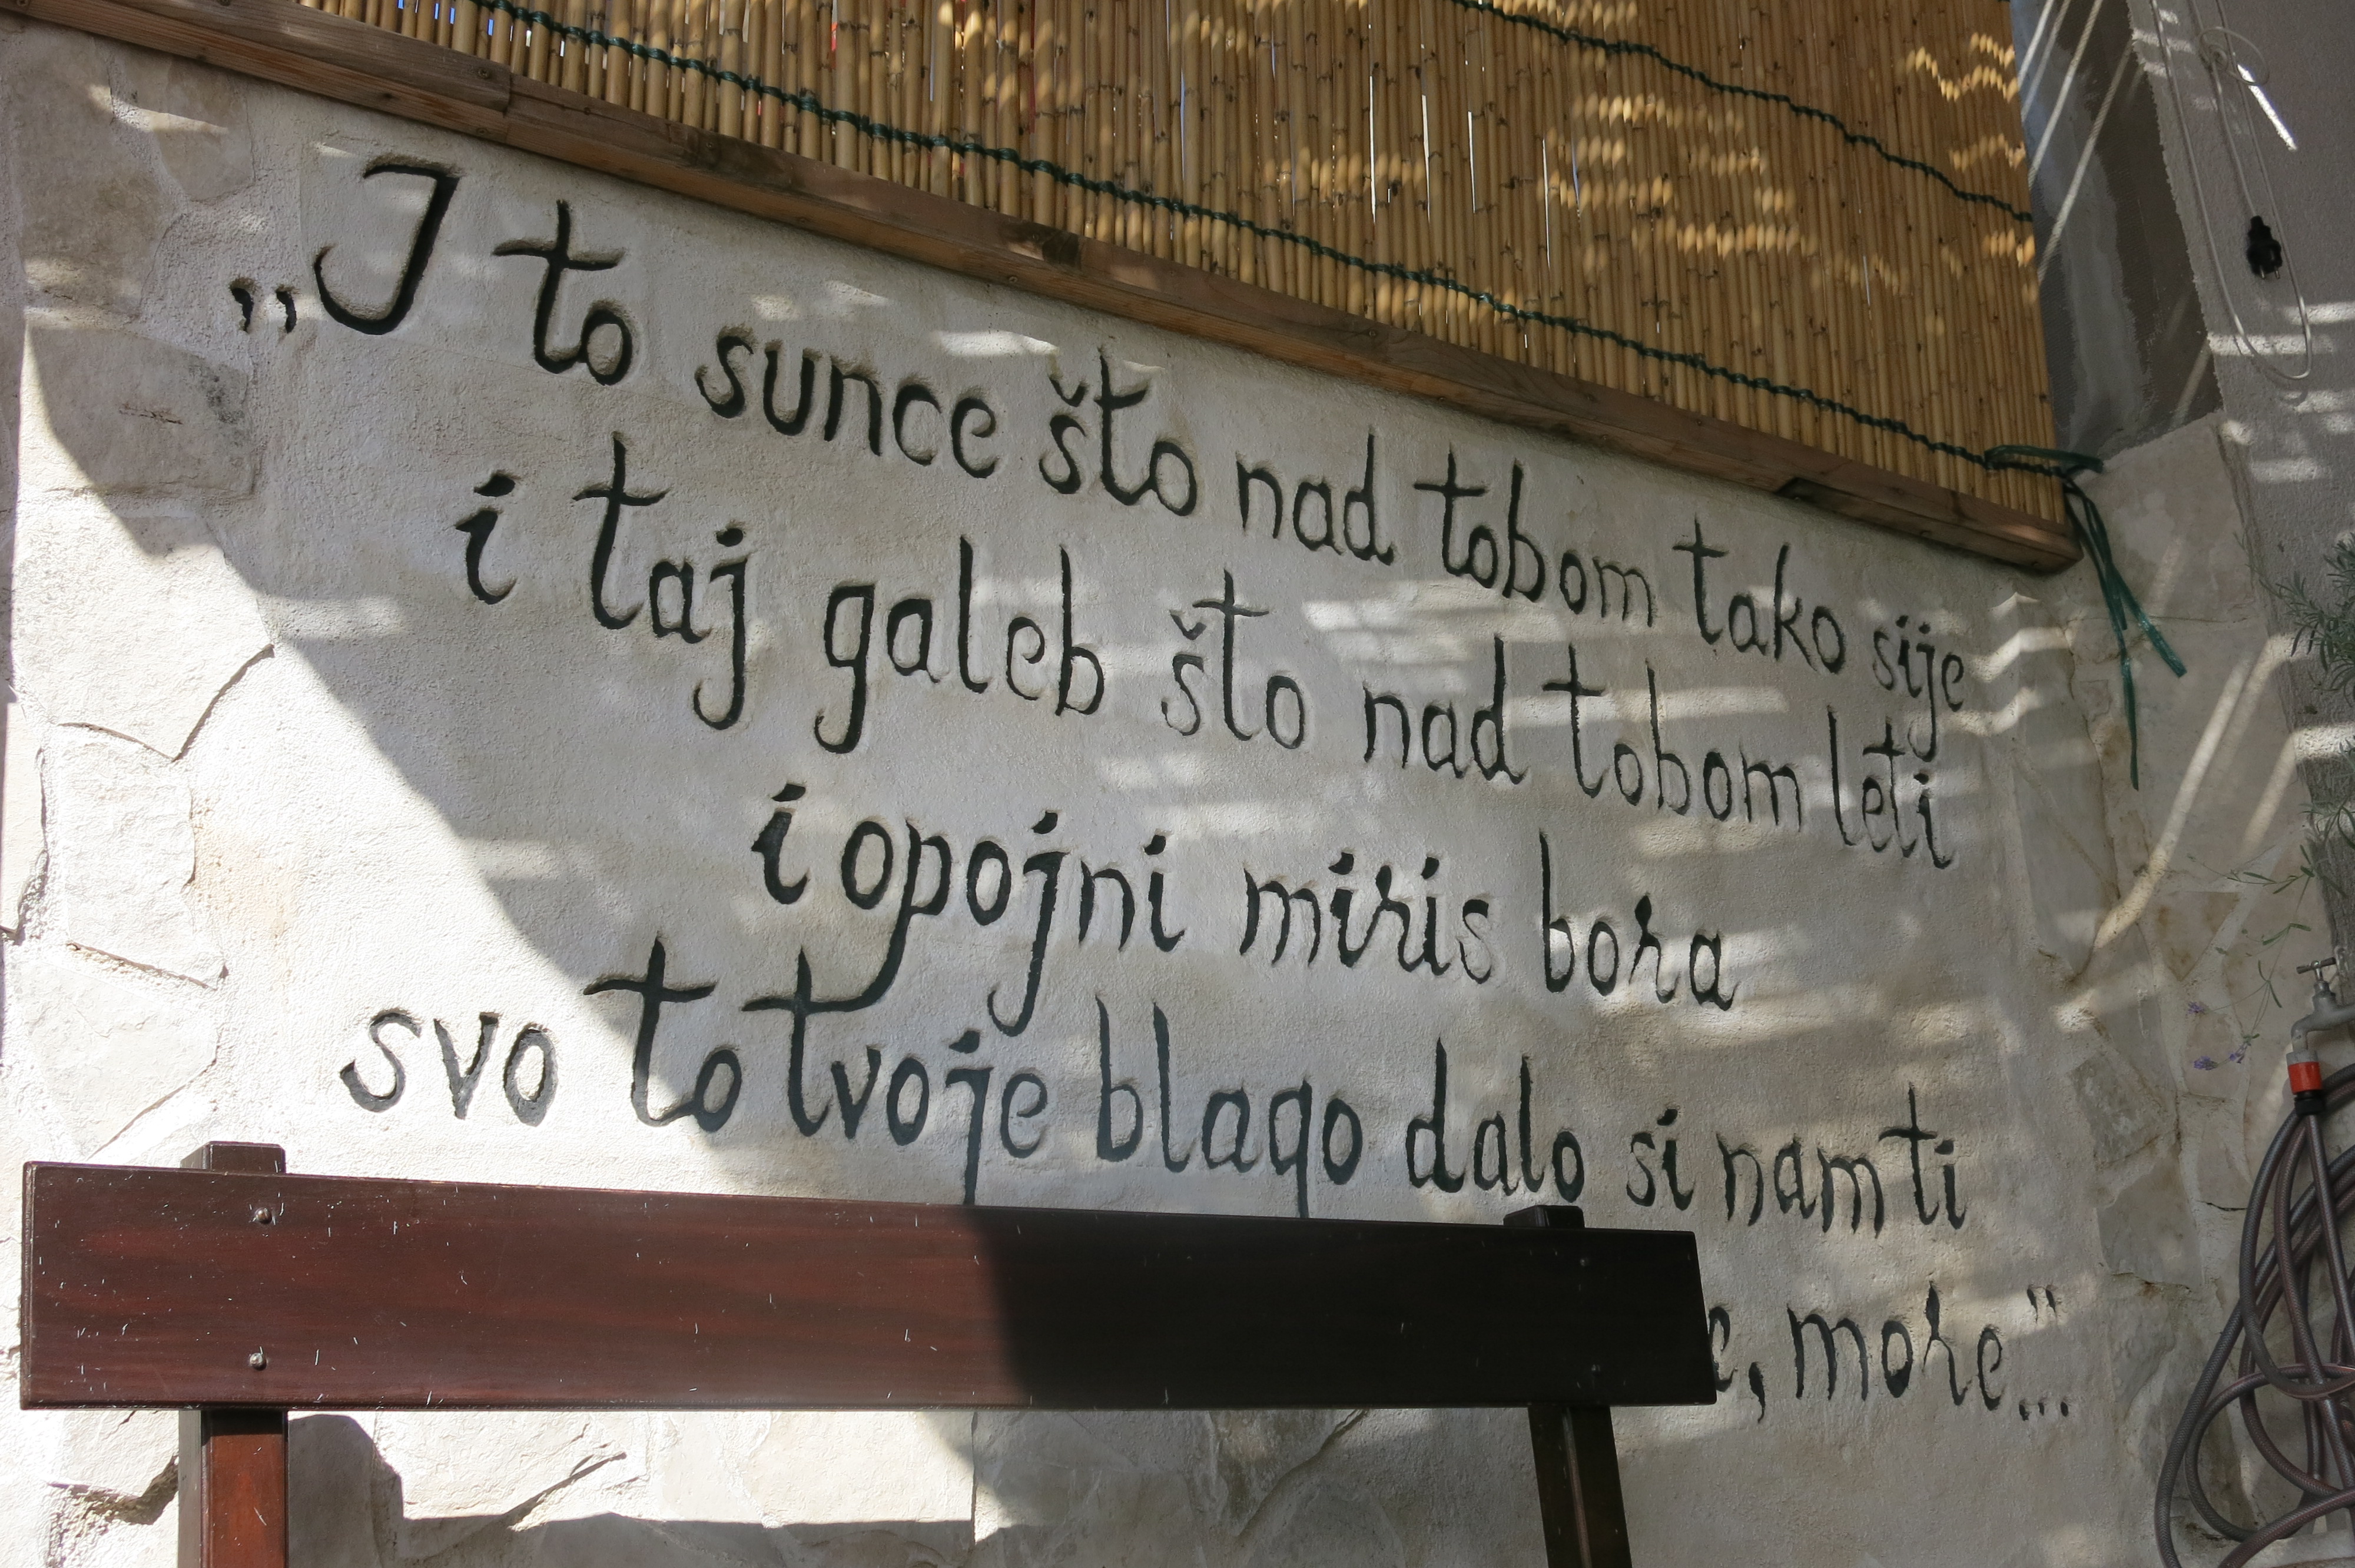 „I to sunce što nad tobom tako sije
i taj galeb što nad tobom leti
i opojni miris bora
svo to tvoje blago dalo si nam ti
more..."